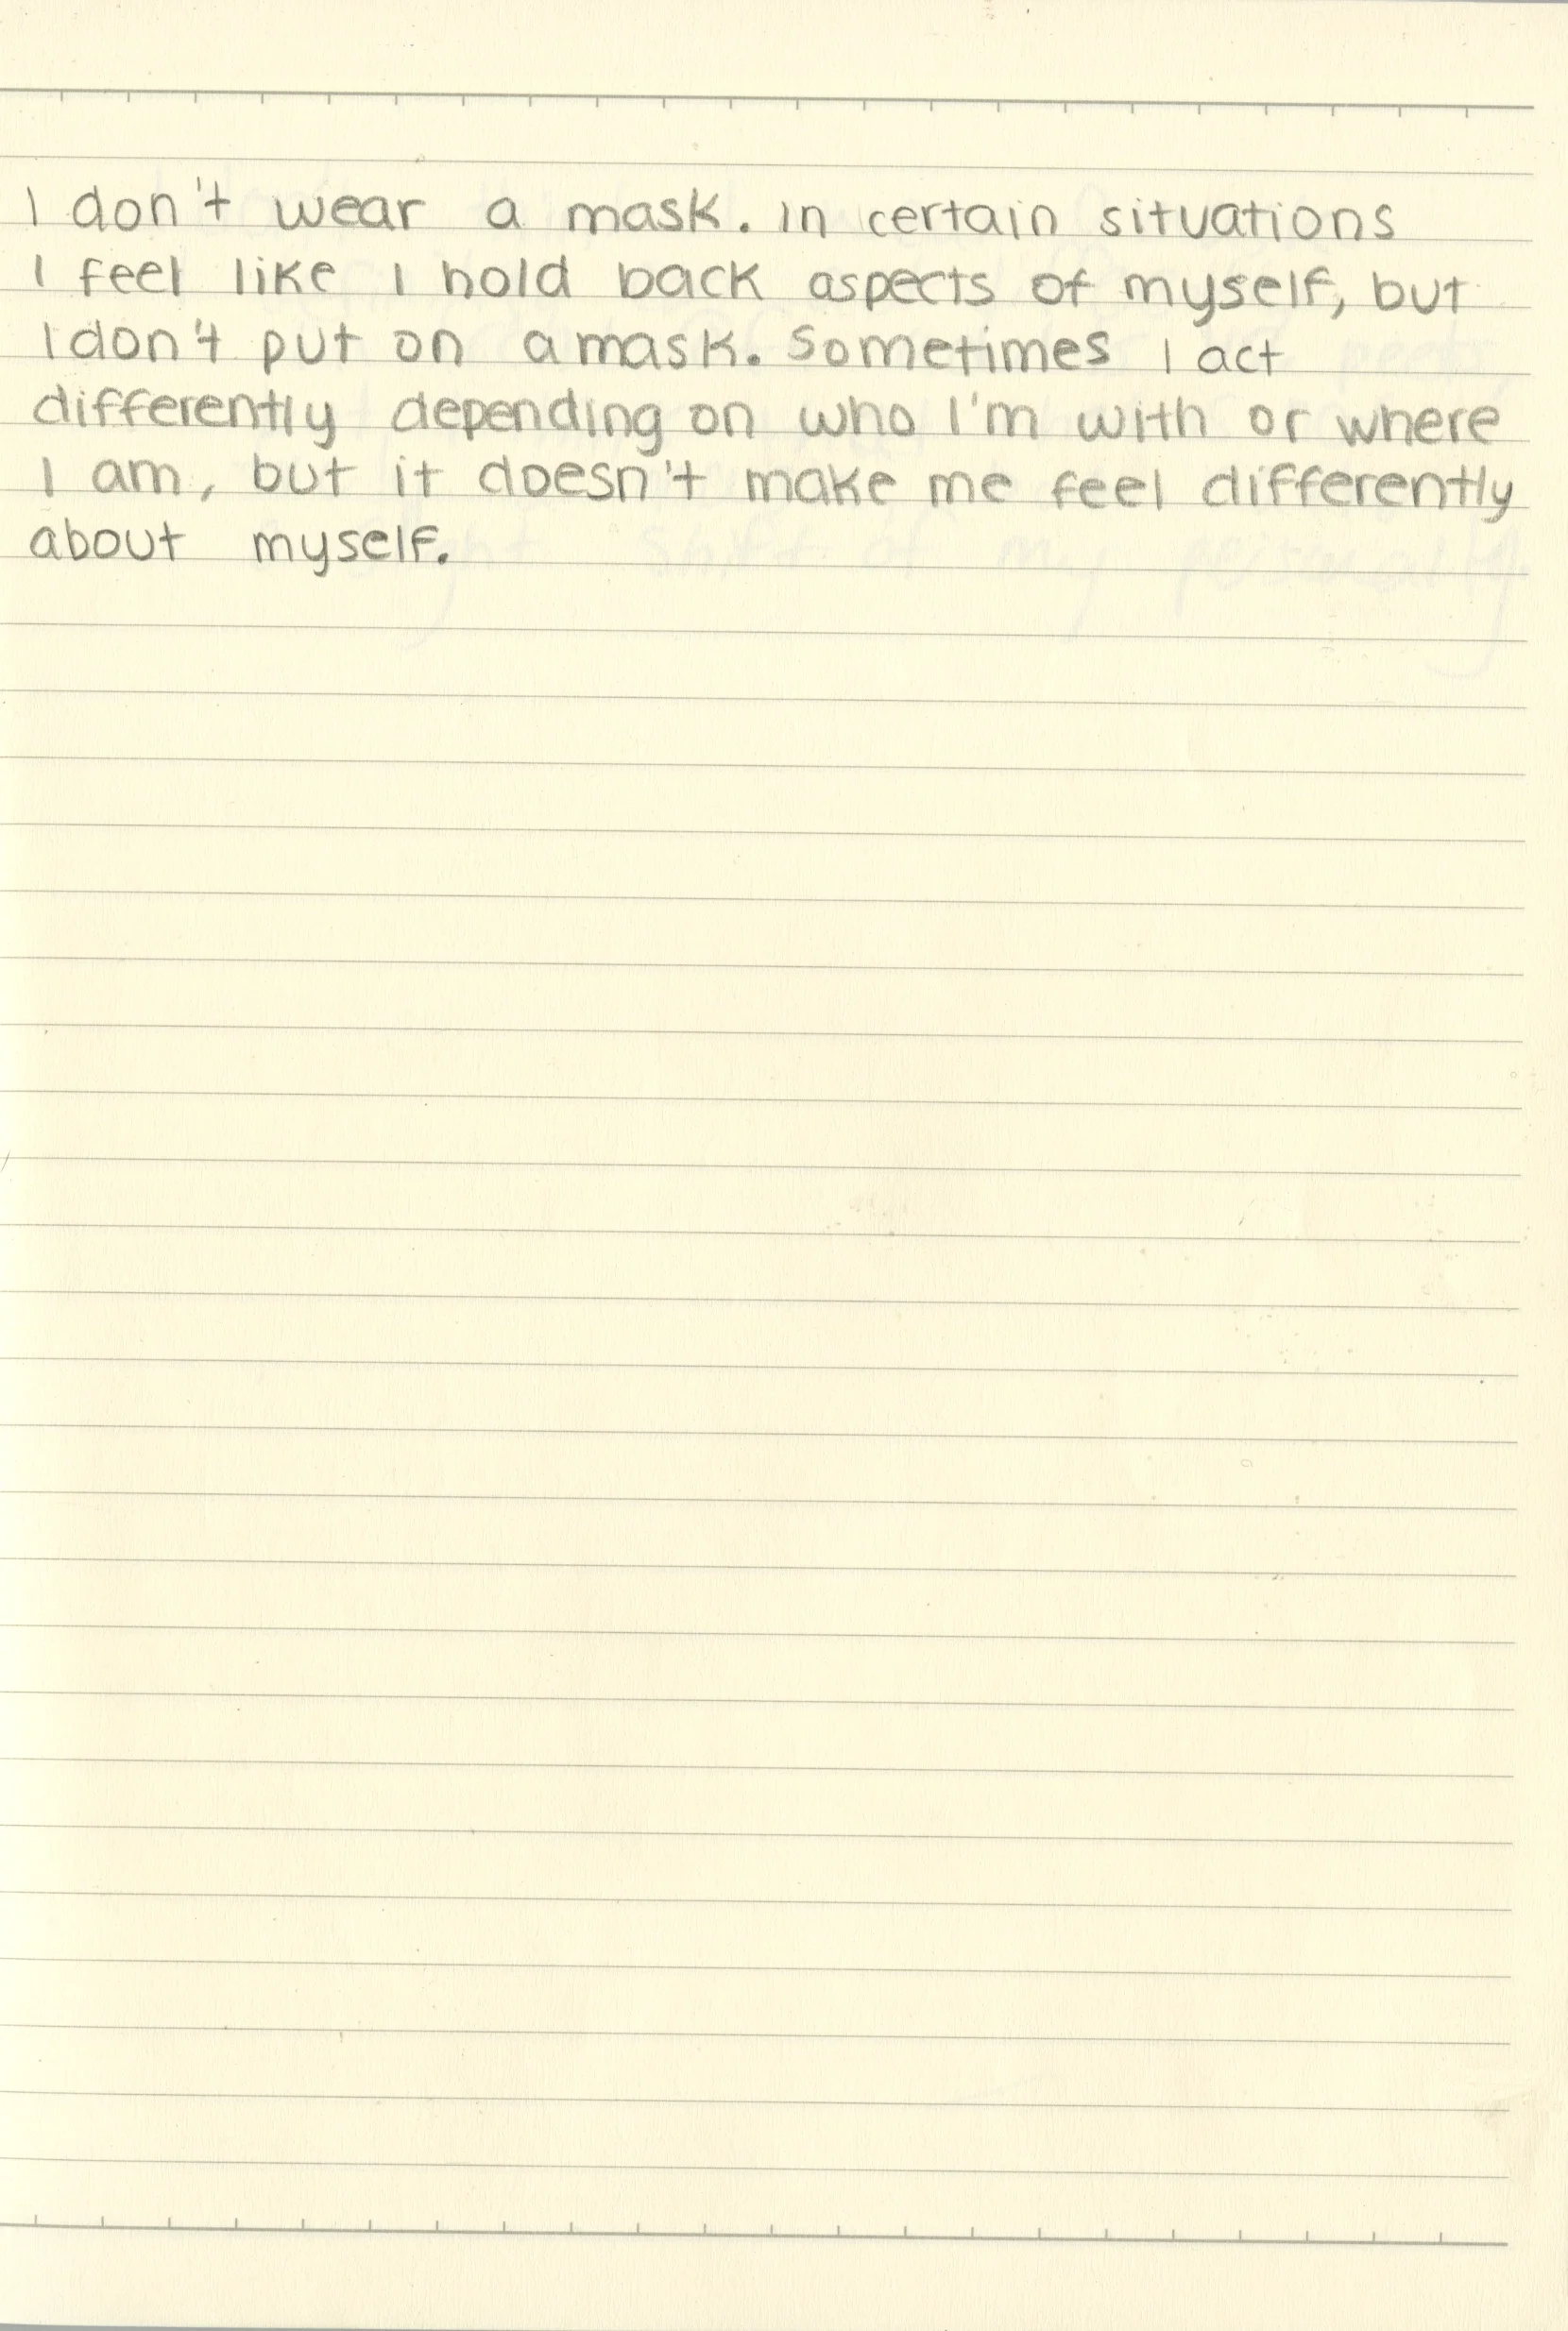 I don't wear a mask. In certain situations
I feel like I hold back aspects of myself, but
I don't put on a mask. Sometimes I act
differently depending on who I'm with or where
I am, but it doesn't make me feel differently
about myself.